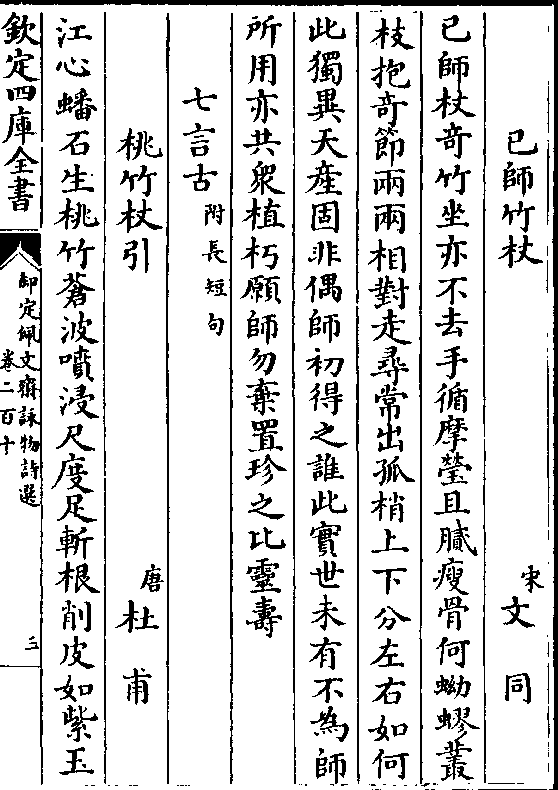 已師竹杖 宋文同
已師杖奇竹坐亦不去手循摩瑩且膩瘦骨何蚴蟉叢
枝抱奇節兩兩相對走尋常出孤梢上下分左右如何
此獨異天産固非偶師初得之誰此實世未有不為師
所用亦共衆植朽願師勿棄置珍之比靈壽
七言古附長短句
桃竹杖引 唐杜甫
江心蟠石生桃竹蒼波噴浸尺度足斬根削皮如紫玉
欽定四庫全書
御定佩文齋詠物詩選
卷二百十
三